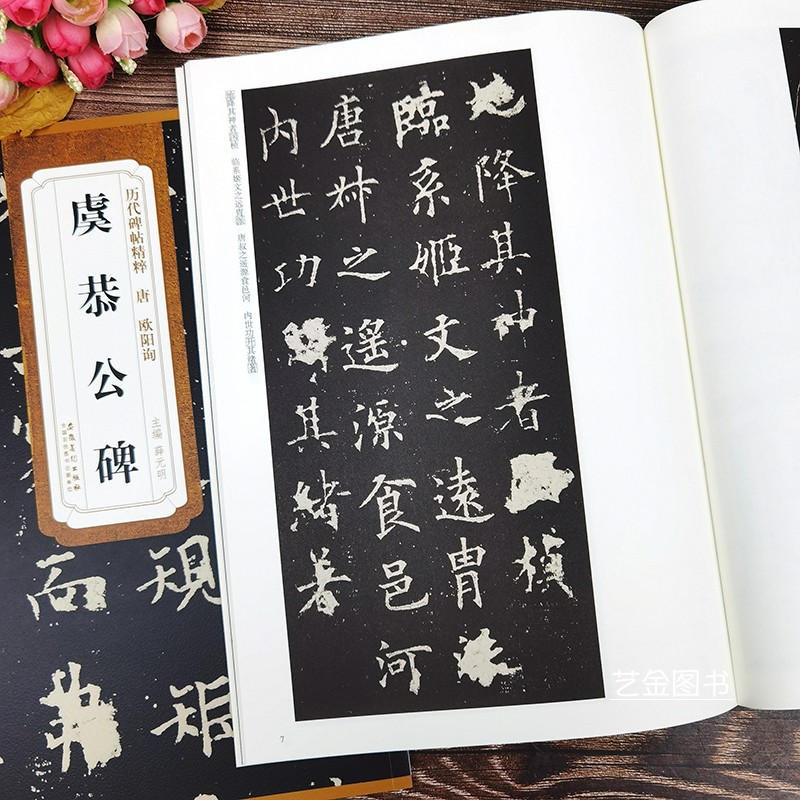 历代碑帖精粹 唐 欧阳询
虞恭公碑
主编 薛元明
安徽美术出版社
地降其神者 桢 临系姬文之远胄派 唐叔之遥源食邑河 内世功 其绪著
地降其神者 楨
臨系姬文之遠胄派
唐叔之遥源食邑河
内世功 其緒著
7
規
艺金图书